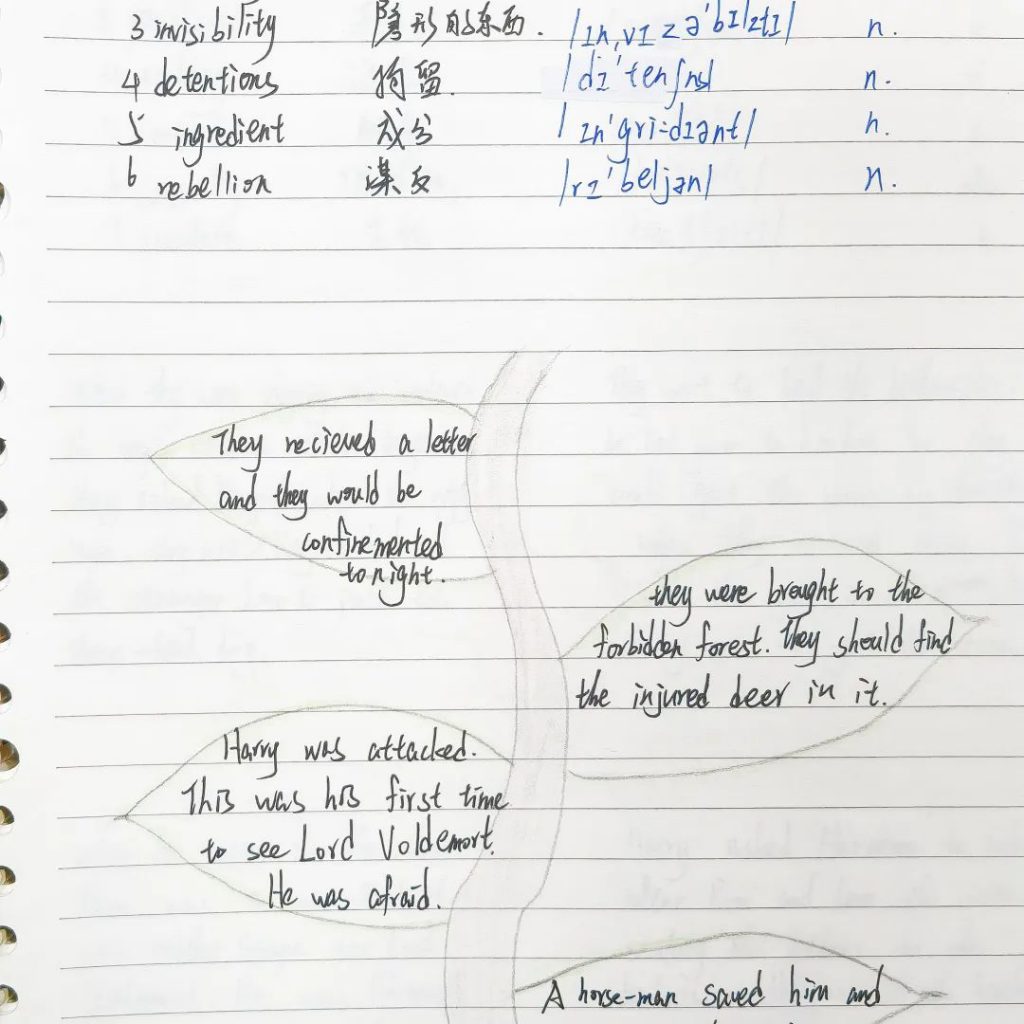 3 invisibility 隐形的东西. /ɪn,vɪzə'bɪlɪtɪ/ n.
4 detentions 拘留. /dɪ'tenʃns/ n.
5 ingredient 成分 /ɪn'gri:dɪənt/ n.
6 rebellion 谋反 /rɪ'beljən/ n.
They recieved a letter
and they would be
confinemented
tonight.
they were brought to the
forbidden forest. They should find
the injured deer in it.
Harry was attacked.
This was his first time
to see Lord Voldemort.
He was afraid.
A horse-man saved him and